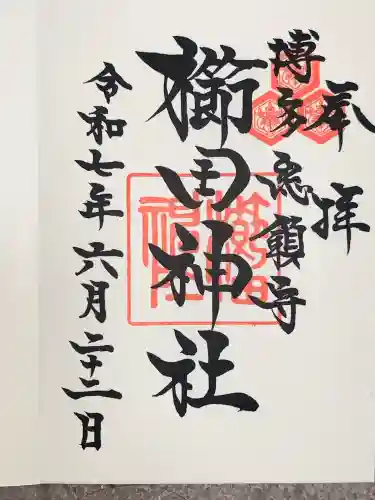 奉拝
博多总鎮守
櫛田神社
令和七年六月二十二日